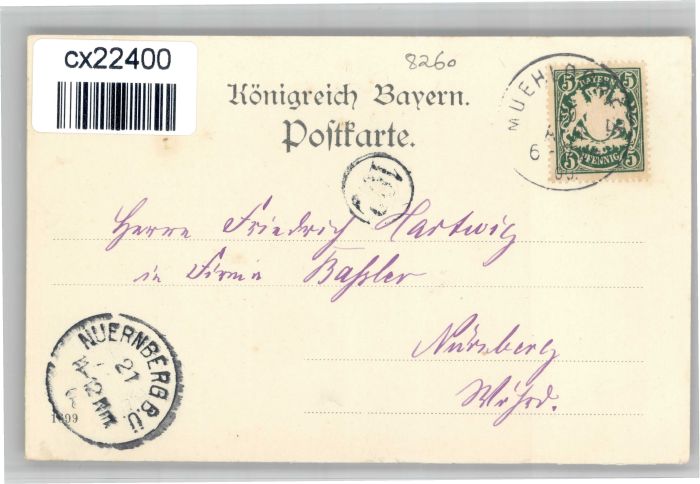 cx22400
8260
Königreich Bayern.
Postkarte.
MUEHLD
5 BAYERN 5
5 PFENNIG 5
Herrn Friedrich Hartwig
in Firma Bassler
Nürnberg
Wöhrd.
NUERNBERG B.Ü.
21
1899